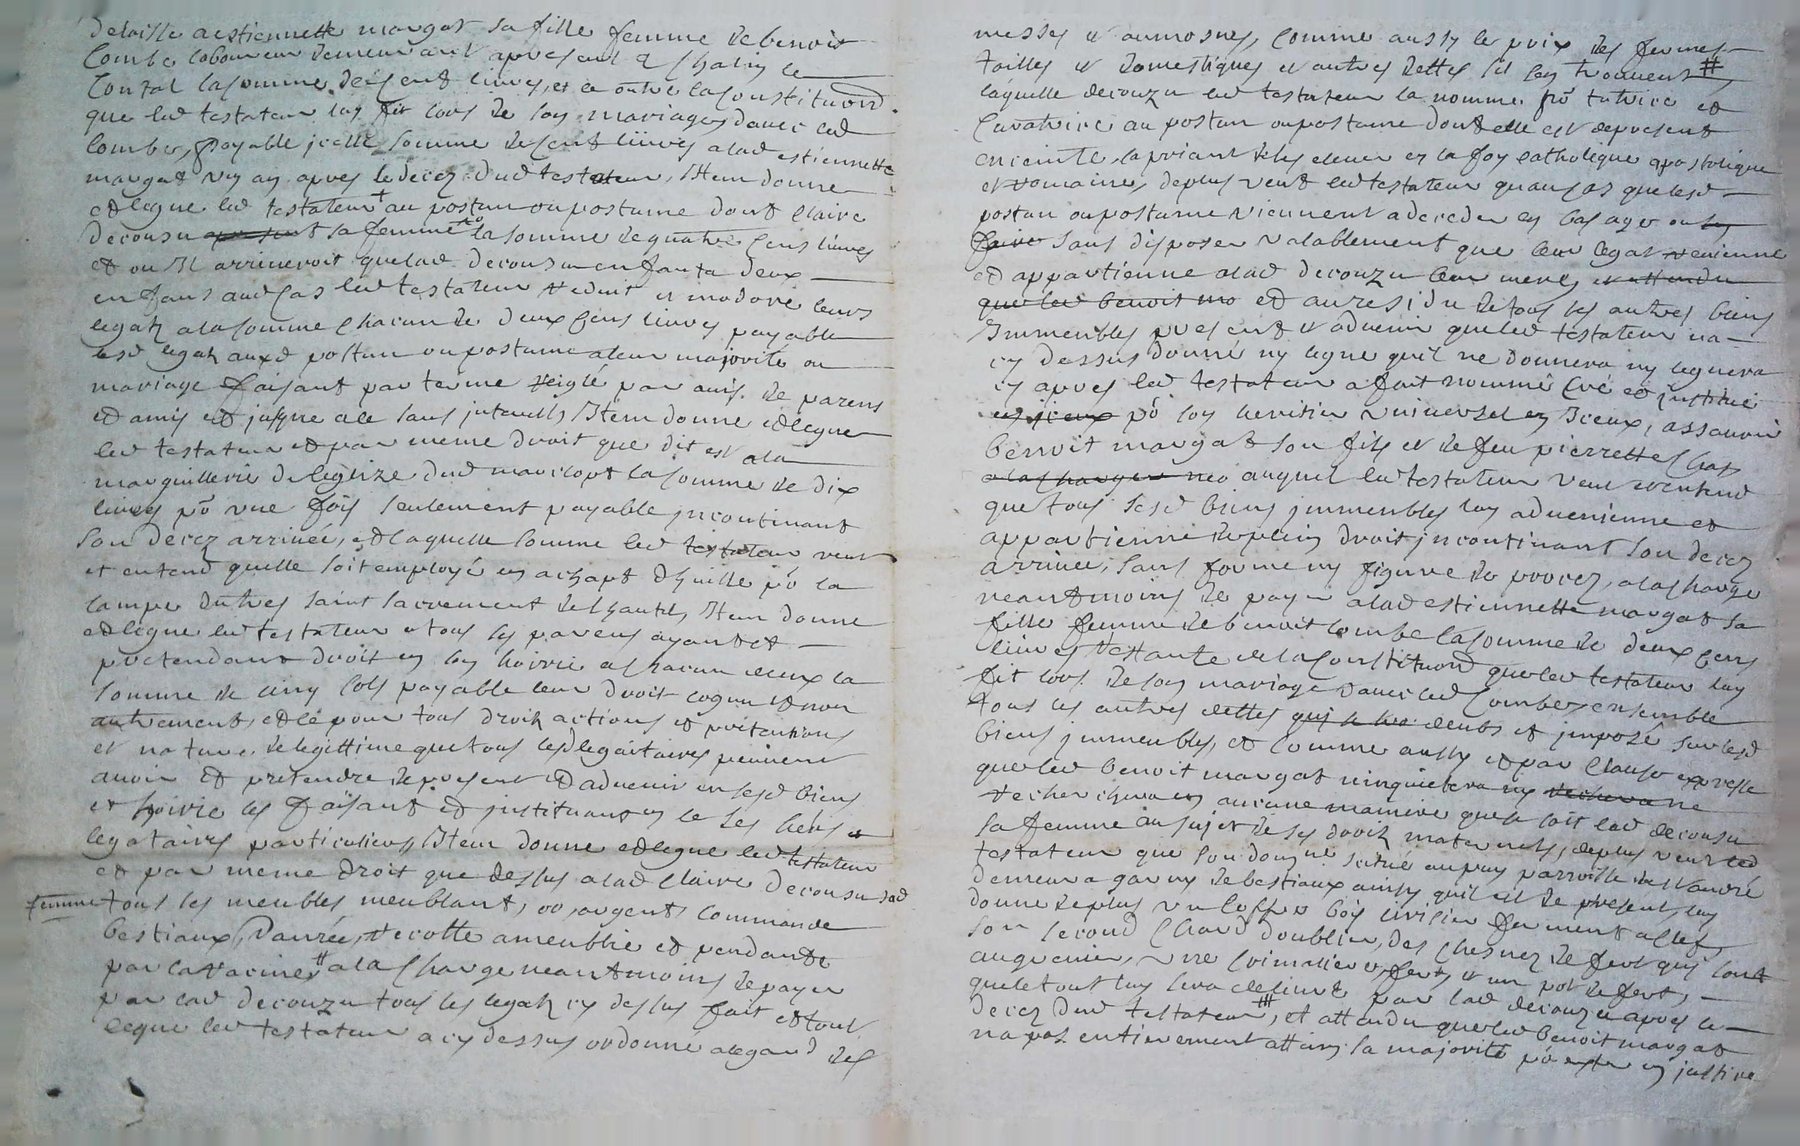 delaisse aestiennette margat sa fille femme de benoit
Combe laboureur demeurant apresent a Chalin le
Contal la somme de cent livres, et ce outre la constituon
que led testateur luy fit lors de son mariage davec led
Combe, payable jcelle somme de cent livres alad estiennette
margat un an apres le decez dud testateur, Item donne
et legue led testateur au postun oupostume dont Claire
decousu sa femme la somme de quatre cens livres
et ou Il arriveroit quelad decousu enfanta deux
enfans aud cas led testateur reduit et modore leurs
legatz ala somme chacun de deux cens livres payable
lesd legatz auxd postun oupostume aleur majorité ou
mariage faisant par terme reiglé par avis de parens
et amis et jusque ale sans jnterestz, Item donne et legue
led testateur et par meme droit que dit est ala
marguillerie de leglize dud marclopt la somme de dix
livres po une fois seulement payable jncontinant
son decez arrivée, et laquelle somme led testateur veut
et entend quelle soit employé en achapt dhuille po la
lampe du tres saint sacrement de lhautel, Item donne
et legue led testateur a tous ses parens ayant et
pretendant droit en son hoirie a chacun deux la
somme de cinq sols payable leur droit cognu et non
autrement, et ce pour tous droitz actions et pretentions
et nature de legittime que tous lesd legataires peuvent
avoir et pretendre de present et advenir en sesd biens
et hoirie les faisant et jnstituant en ce ses heus et
legataires particuliers, Item donne et legue led testateur
et par meme droit que dessus alad Claire decousu sad
femme tous les meubles meublant, or, argent, commande
bestiaux, danrée, recolte ameublie et pendante
par la racine # ala charge neantmoins de payer
par lad decouzu tous les legatz cy dessus fait et tout
ceque led testateur a cy dessus ordonne alegard des
messes et aumosnes, comme aussy le prix des fermes
tailles et domestiques et autres dettes sil sen trouvent #
laquelle decouzu led testateur la nomme po tutrice et
Curatrice au postun oupostume dont elle est depresent
enceinte, la priant de les elever en la foy catholique apostolique
et romaine, deplus veut led testateur quau cas que lesd
postun oupostume viennent a deceder en bas age ou
sans disposer valablement que leur legat revienne
et appartienne alad decouzu leur mere, et attendu
que led benoit et au residu de tous ses autres biens
Immeubles present et advenir que led testateur na
cy dessus donné ny legue quil ne donnera ny leguera
cy apres led testateur a fait nommé créé et jnstitué
po son heritier universel en Iceux, assavoir
benoit margat son fils et de feu pierrette Chat
auquel led testateur veut et entend
que tous sesd biens jmmeubles luy advenienne et
appartienne deplein droit jncontinant son decez
arrivée, sans forme ny figure de procez, ala charge
neantmoins de payer alad estiennette margat sa
fille femme de benoit combe la somme de deux cens
livres restante de la constituon que led testateur luy
fit lors de son mariage davec led Combe, ensemble
tous les autres dettes deubs et jmposé sur lesd
biens jmmeubles, et comme aussy et par clause expresse
que led benoit margat ninquietera ny ne
recherchera en aucune maniere que ce soit lad decousu
sa femme au sujet de ses droitz maternels, deplus veut led
testateur que son domne scitué au puy parroisse de St andré
demeura garny de bestiaux ainsy quil est de present, luy
donne deplus un coffre boy cirisier fermant a clef
son second chard doublier, des chesnez de fert qui sont
augrenier, une crimaliere fert, et un pot de fert,
quele tout luy sera delivré par lad decouzu apres le
decez dud testateur, et attendu que led benoit margat
na pas entierement attaint la majorité po en justice